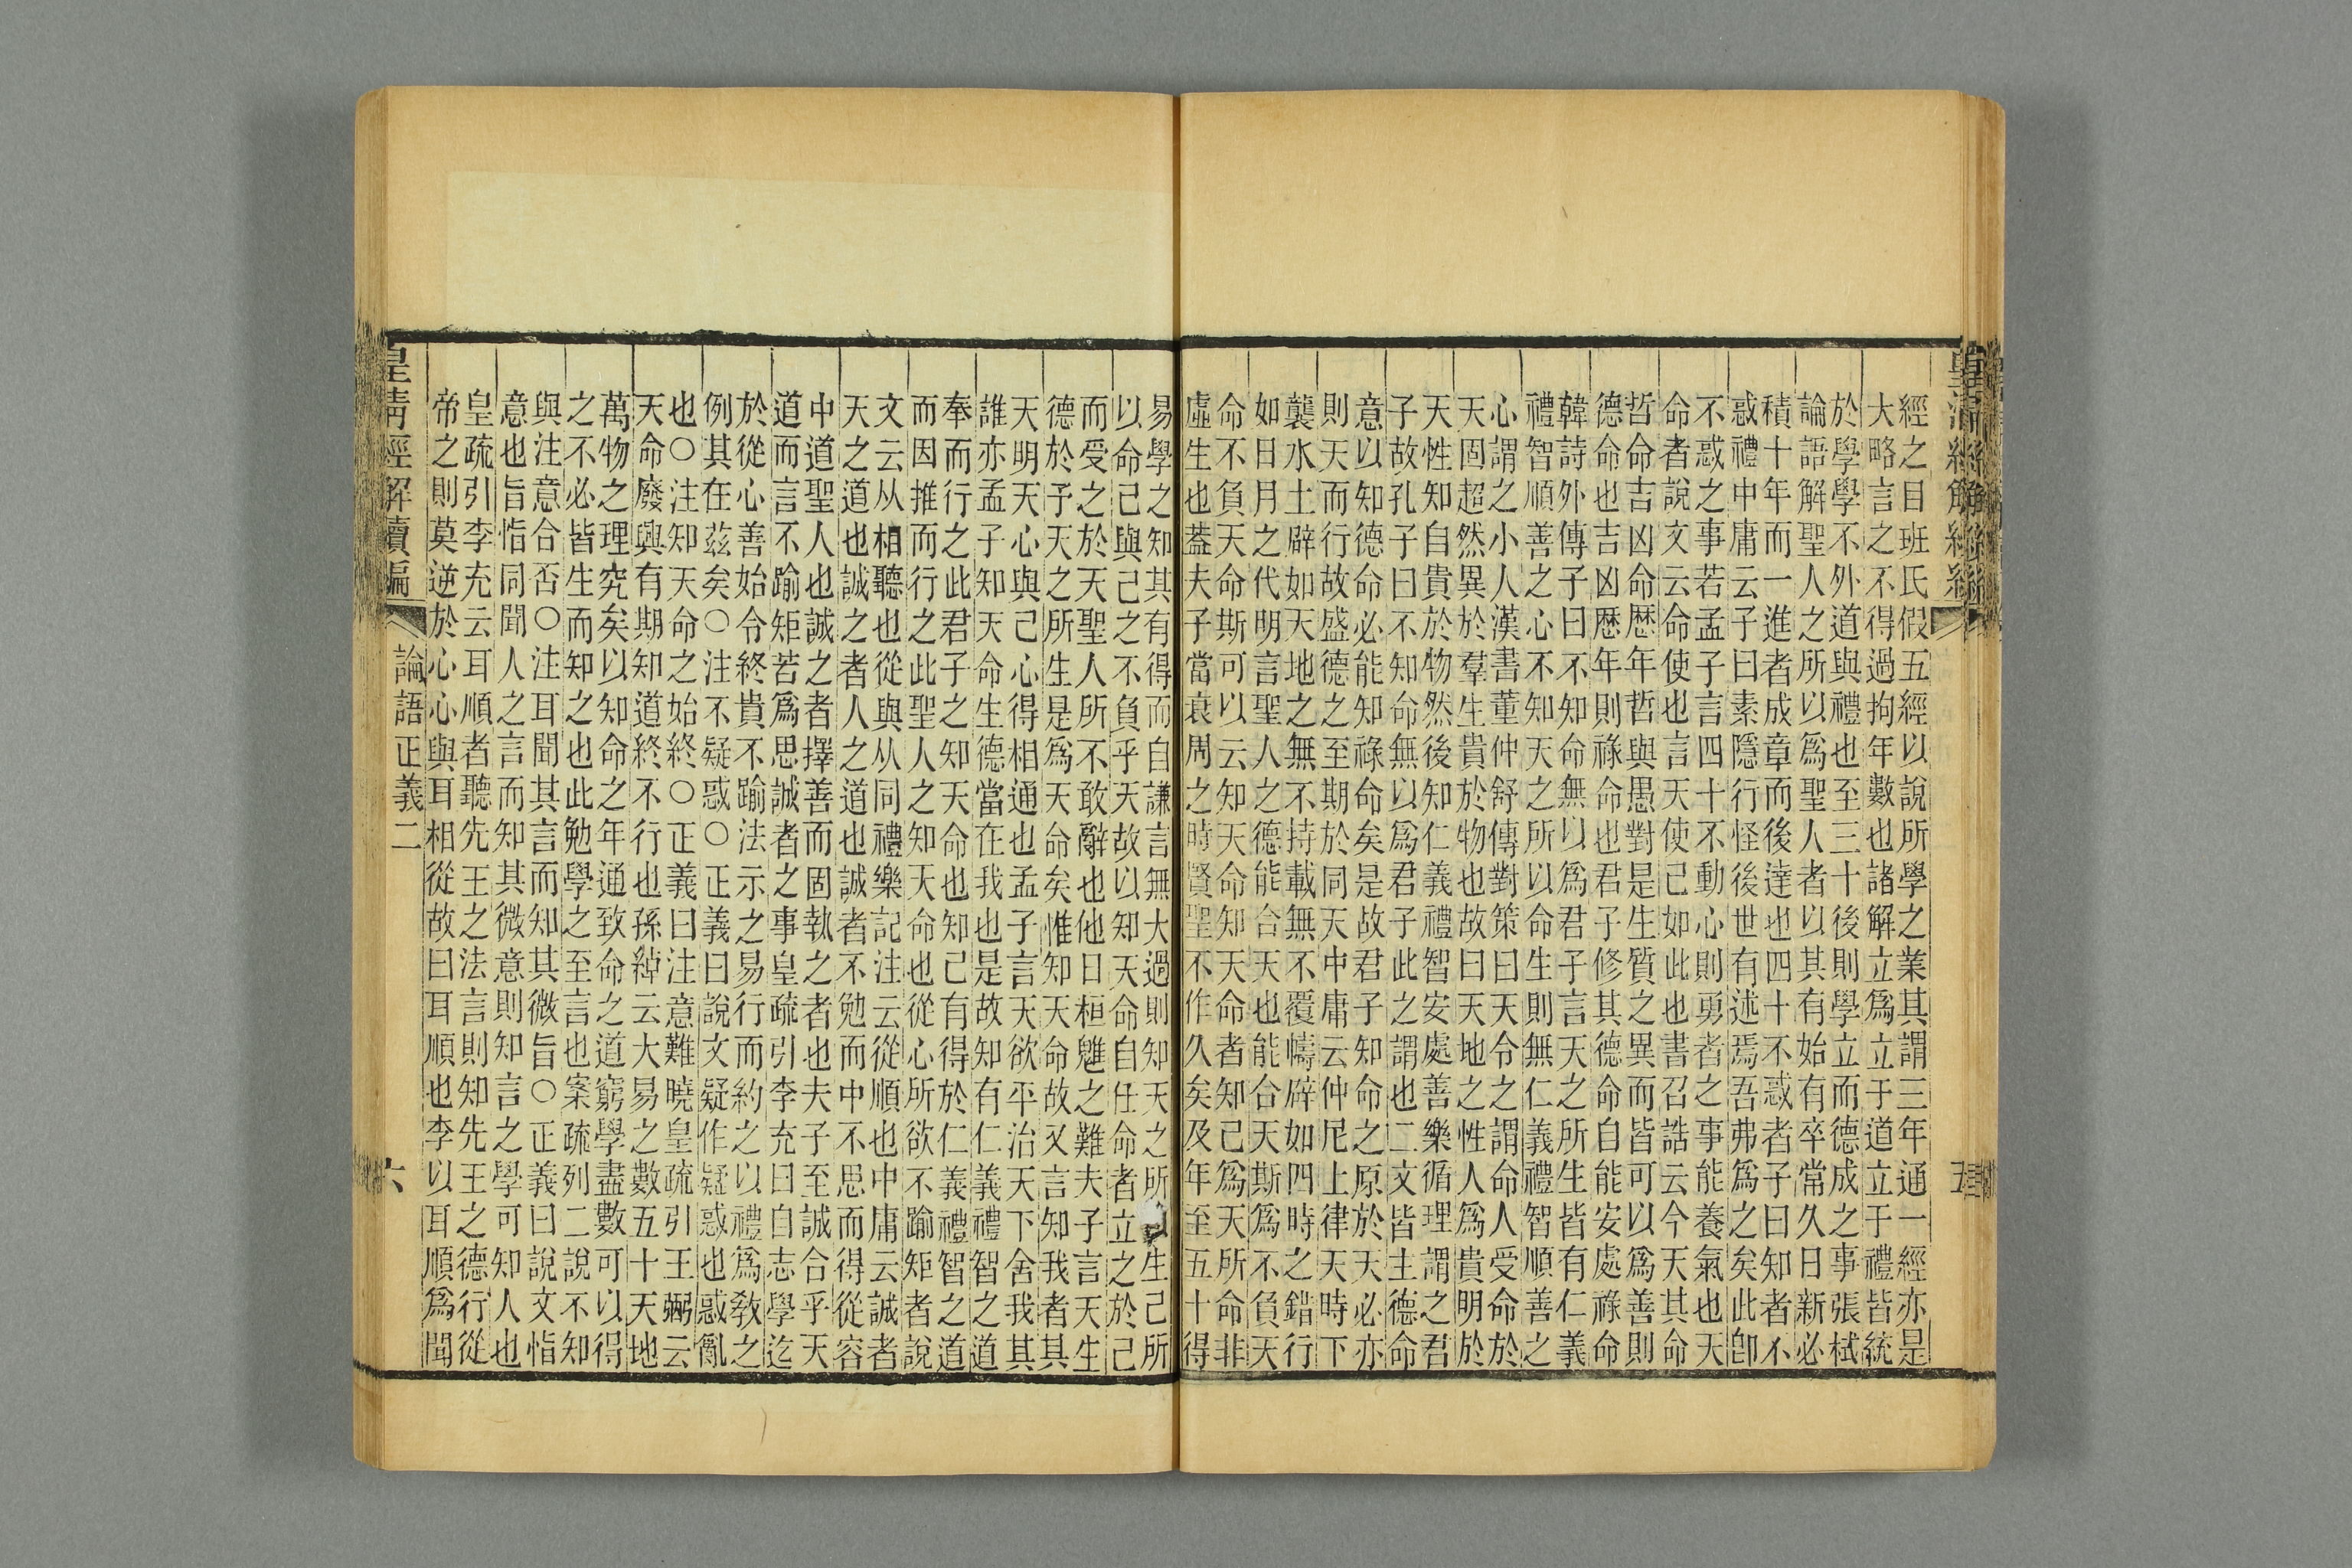 經之目班氏假五經以說所學之業其謂三年通一經亦是
大略言之不得過拘年數也諸解立爲立于道立于禮皆統
於學學不外道與禮也至三十後則學立而德成之事張栻
論語解聖人之所以爲聖人者以其有始有卒常久日新必
積十年而一進者成章而後達也四十不惑者子曰知者不
惑禮中庸云子曰素隱行怪後世有述焉吾弗爲之矣此卽
不惑之事若孟子言四十不動心則勇者之事能養氣也天
命者說文云命使也言天使己如此也書召誥云今天其命
哲命吉凶命歷年哲與愚對是生質之異而皆可以爲善則
德命也吉凶歷年則祿命也君子修其德命自能安處祿命
韓詩外傳子曰不知命無以爲君子言天之所生皆有仁義
禮智順善之心不知天之所以命生則無仁義禮智順善之
心謂之小人漢書董仲舒傳對策曰天令之謂命人受命於
天固超然異於羣生貴於物也故曰天地之性人爲貴明於
天性知自貴於物然後知仁義禮智安處善樂循理謂之君
子故孔子曰不知命無以爲君子此之謂也二文皆主德命
意以知德命必能知祿命矣是故君子知命之原於天必亦
則天而行故盛德之至期於同天中庸云仲尼上律天時下
襲水土辟如天地之無不持載無不覆幬辟如四時之錯行
如日月之代明言聖人之德能合天也能合天斯爲不負天
命不負天命斯可以云知天命知天命者知己爲天所命非
虛生也葢夫子當衰周之時賢聖不作久矣及年至五十得
易學之知其有得而自謙言無大過則知天之所生己所
以命己與己之不負乎天故以知天命自任命者立之於己
而受之於天聖人所不敢辭也他日桓魋之難夫子言天生
德於予天之所生是爲天命矣惟知天命故又言知我者其
天明天心與己心得相通也孟子言天欲平治天下舍我其
誰亦孟子知天命生德當在我也是故知有仁義禮智之道
奉而行之此君子之知天命也知己有得於仁義禮智之道
而因推而行之此聖人之知天命也從心所欲不踰矩者說
文云从相聽也從與从同禮樂記注云從順也中庸云誠者
天之道也誠之者人之道也誠者不勉而中不思而得從容
中道聖人也誠之者擇善而固執之者也夫子至誠合乎天
道而言不踰矩若爲思誠者之事皇疏引李充曰自志學迄
於從心善始令終貴不踰法示之易行而約之以禮爲敎之
例其在茲矣○注不疑惑○正義曰說文疑作疑惑也惑亂
也○注知天命之始終○正義曰注意難曉皇疏引王弼云
天命廢興有期知道終不行也孫綽云大易之數五十天地
萬物之理究矣以知命之年通致命之道窮學盡數可以得
之不必皆生而知之也此勉學之至言也案疏列二說不知
與注意合否○注耳聞其言而知其微旨○正義曰說文恉
意也旨恉同聞人之言而知其微意則知言之學可知人也
皇疏引李充云耳順者聽先王之法言則知先王之德行從
帝之則莫逆於心心與耳相從故曰耳順也李以耳順爲聞
皇淸經解續編
論語正義二
六